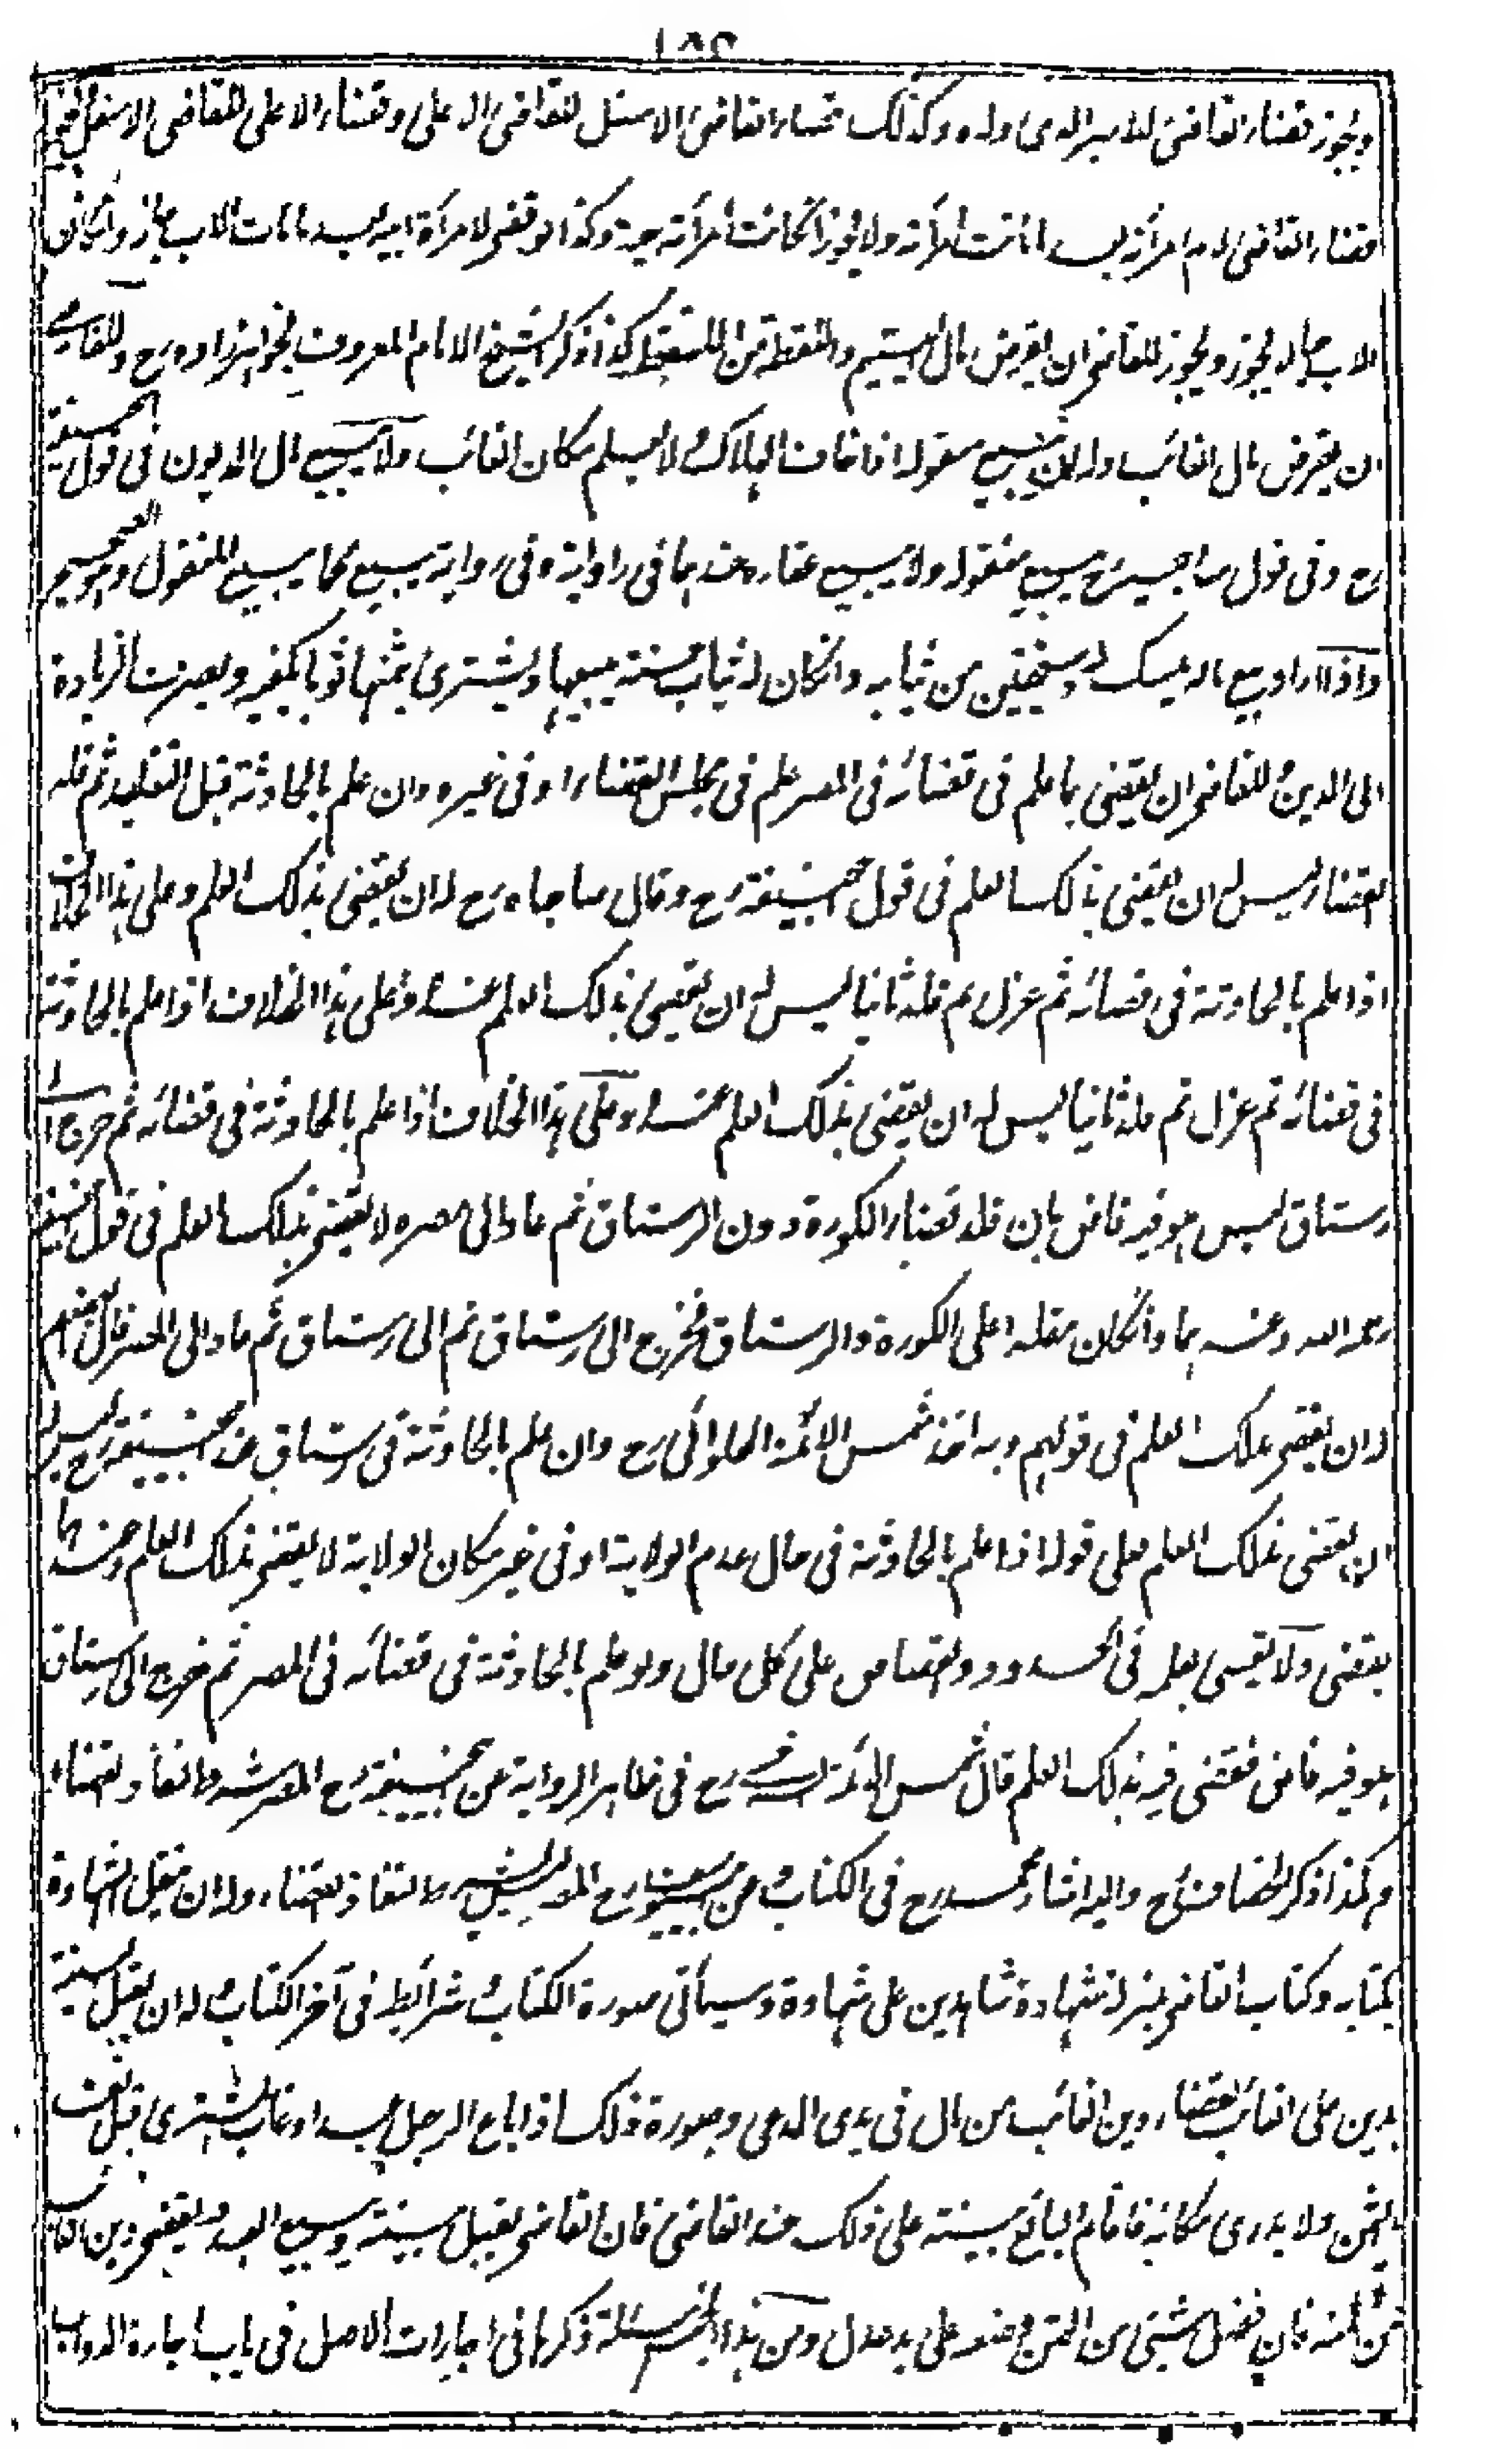 ويجوز قضاء القاضى للامير الذى ولاه وكذلك قضاء القاضى الاسفل للقاضى الاعلى وقضاء الاعلى للقاضى الاسفل
قضاء القاضى لام امرأته بعد ما ماتت امرأته ولا يجوز انكانت امرأته حية وكذا لو قضى لامرأة ابيه بعد ما مات الاب جاز وانكان
الاب حيا لا يجوز ويجوز للقاضى ان يقرض مال اليتيم واللقطة من الملتقط كذا ذكر الشيخ الامام المعروف بخواهرزاده رح وللقاضى
ان يقرض مال الغائب وله ان يبيع منقوله اذا خاف الهلاك ولا يعلم مكان الغائب ولا يبيع مال المديون فى قول ابيحنيفة
رح وفى قول صاحبيه رح يبيع منقوله ولا يبيع عقاره عندهما فى رواية وفى رواية يبيع كما يبيع المنقول وهو الصحيح
واذا اراد بيع ماله يمسك له دستجتين من ثيابه وانكان له ثياب حسنة يبيعها ويشترى بثمنها ثوبا يكفيه ويصرف الزيادة
الى الدين للقاضى ان يقضى بما علم فى قضائه فى المصر علم فى مجلس القضاء او فى غيره وان علم بالحادثة قبل التقليد ثم قلد
القضاء ليس له ان يقضى بذلك العلم فى قول ابيحنيفة رح وقال صاحباه رح له ان يقضى بذلك العلم وعلى هذا الخلاف
اذا علم بالحادثة فى قضائه ثم عزل ثم قلد ثانيا ليس له ان يقضى بذلك العلم عنده وعلى هذا الخلاف اذا علم بالحادثة
فى قضائه ثم عزل ثم قلد ثانيا ليس له ان يقضى بذلك العلم عنده وعلى هذا الخلاف اذا علم بالحادثة فى قضائه ثم خرج الى
رستاق ليس هو فيه قاض بان قلد قضاء الكورة دون الرستاق ثم عاد الى مصره لا يقضى بذلك العلم فى قول ابيحنيفة
رحمه الله وعندهما وانكان مقلدا على الكورة والرستاق فخرج الى رستاق ثم الى رستاق ثم عاد الى المصر قال بعضهم
له ان يقضى بذلك العلم فى قولهم وبه اخذ شمس الائمة الحلوائى رح وان علم بالحادثة فى رستاق عند ابيحنيفة رح ليس له
ان يقضى بذلك العلم فعلى قوله اذا علم بالحادثة فى حال عدم الولاية او فى غير مكان الولاية لا يقضى بذلك العلم وعندهما
يقضى ولا يقضى بعلمه فى الحدود والقصاص على كل حال ولو علم بالحادثة فى قضائه فى المصر ثم خرج الى رستاق
هو فيه قاض فقضى فيه بذلك العلم قال شمس الائمة السرخسى رح فى ظاهر الرواية عن ابيحنيفة رح المصر شرط لنفاذ القضاء
وهكذا ذكر الخصاف رح واليه اشار محمد رح فى الكتاب وعن ابى يوسف رح المصر ليس بشرط لنفاذ القضاء وله ان يقبل الشهادة
بكتابه وكتاب القاضى بمنزلة شهادة شاهدين على شهادة وسيأتى صورة الكتاب شرائط فى آخر الكتاب وله ان يقبل البينة
بدين على الغائب لقضاء دين الغائب من مال فى يدى المدعى وصورة ذلك اذا باع الرجل عبدا وغاب المشترى قبل نقد
الثمن ولا يدرى مكانه فاقام البائع بينة على ذلك عند القاضى فان القاضى يقبل بينته ويبيع العبد ويقضى دين الغائب
من ثمنه فان فضل شيئ من الثمن وضعه على يد عدل ومن هذا الجنس مسئلة ذكرها فى اجارات الاصل فى باب اجارة الدواب